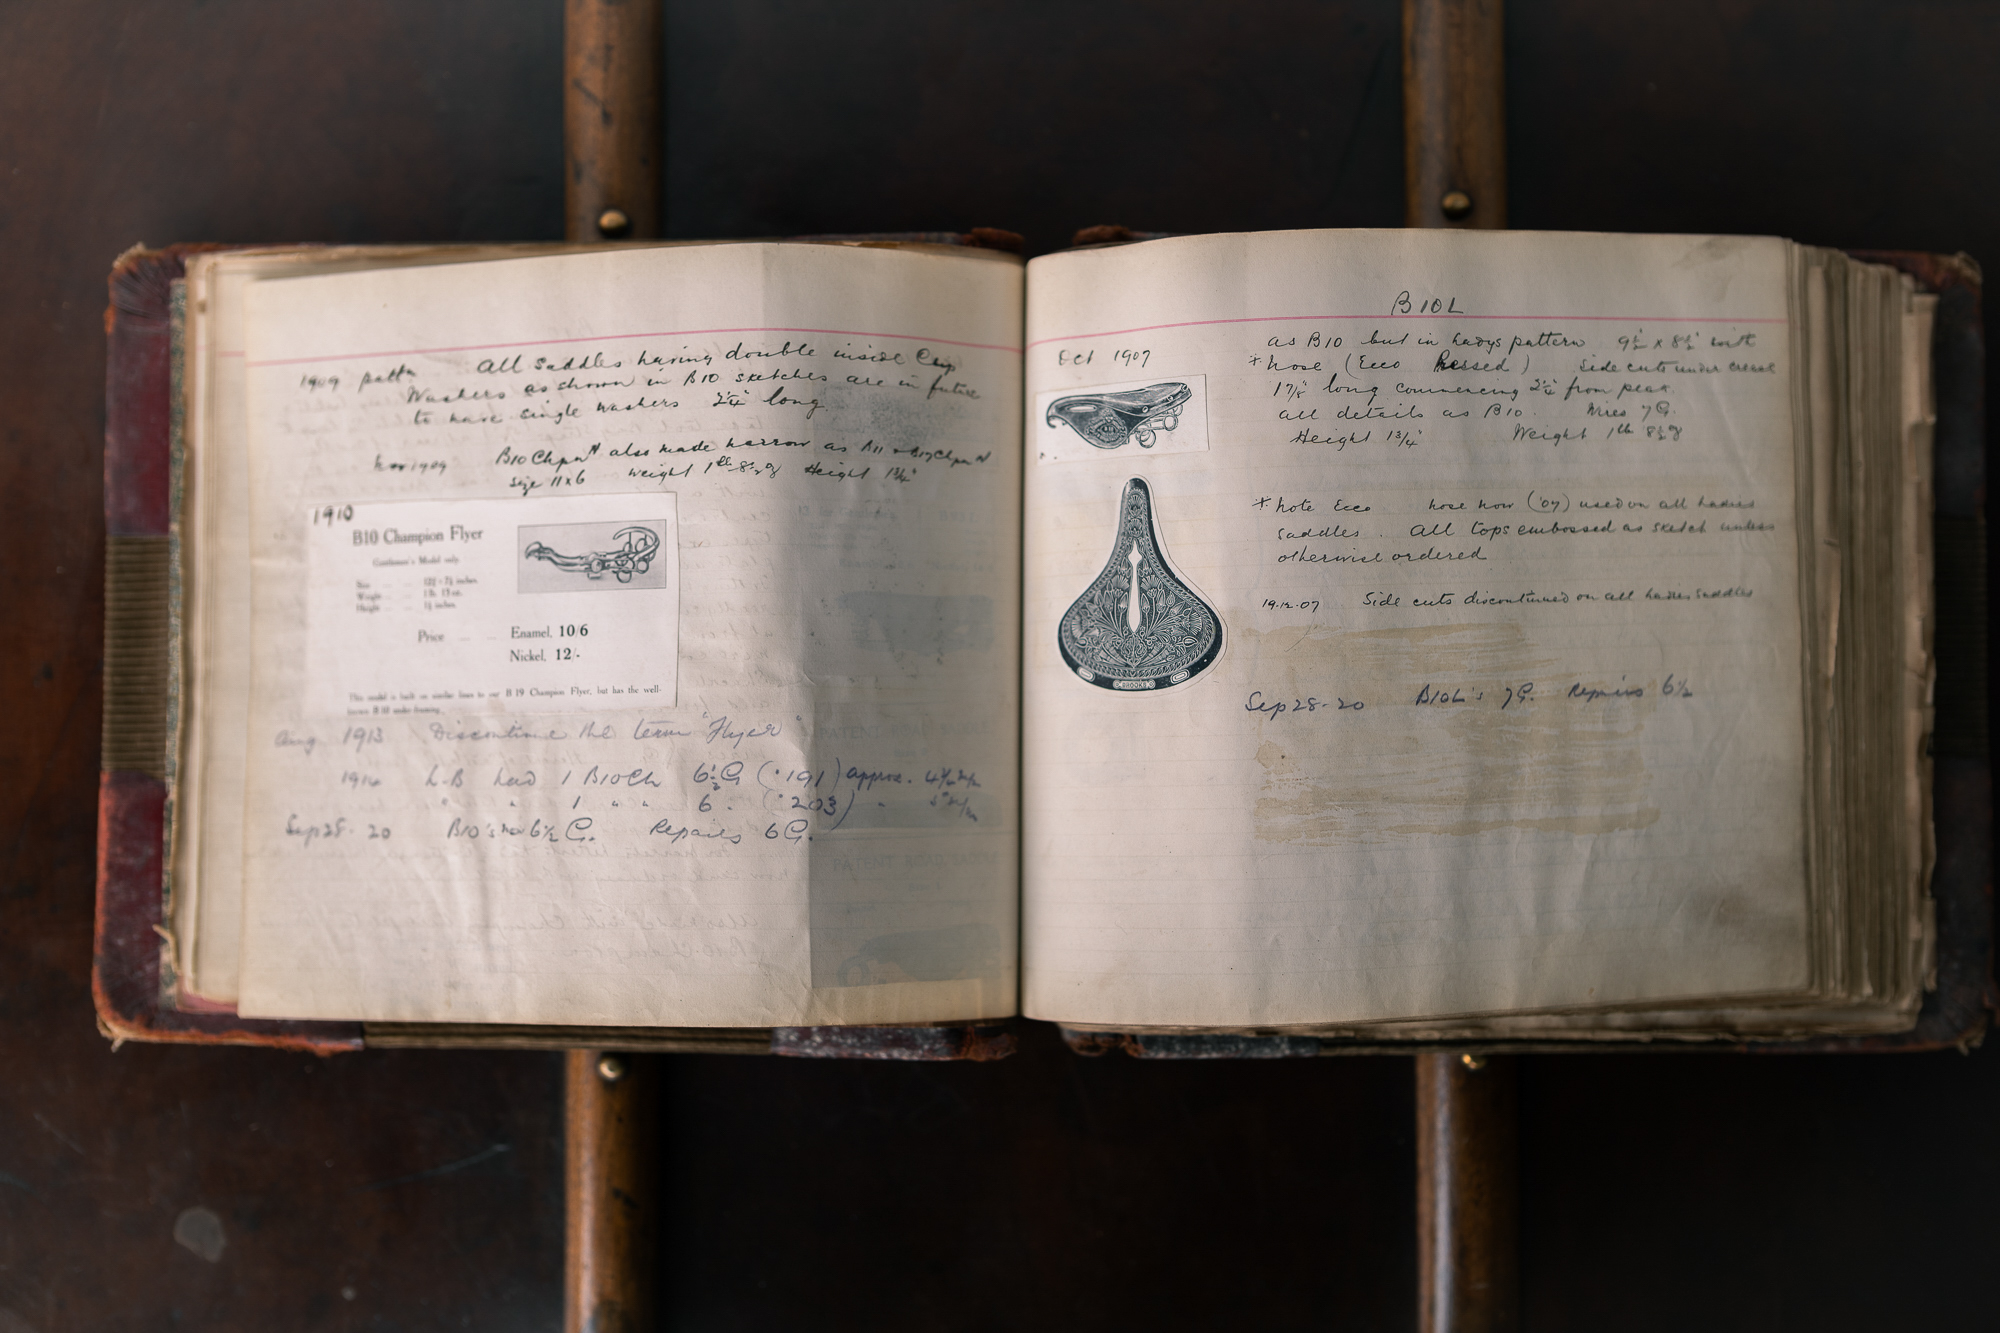 1909 pattn All Saddles having double inside Cup
Washers as shown in B10 sketches are in future
to have single washers 2¼" long
Nov 1909 B10 Chpn N also made narrow as B11 & B17 Chpn N
Size 11x6 Weight 1lb 8½oz Height 1¾"
1910
B10 Champion Flyer
Gentlemen's Model only
Size
Weight 1 lb. 15 oz.
Height inches.
Price Enamel, 10/6
Nickel, 12/-
This model is built on similar lines to our B 19 Champion Flyer, but has the well-
known B 10 under-framing.
Aug 1913 Discontinue the term "Flyer"
L-B had 1 B10Ch 6½G (·191) approx.
" " 1 " " 6 (·203) "
Sep 28-20 B10's now 6½ G. Repairs 6 G.
B10L
Oct 1907
as B10 but in Ladys pattern 9½ x 8½" with
* nose (Ecco Pressed) Side cuts under crease
1⅞" long commencing 2¼" from peak.
all details as B10. Wires 7G.
Height 1¾" Weight 1lb 8½oz
* Note Ecco nose now ('07) used on all Ladies
Saddles. All tops embossed as sketch unless
otherwise ordered
BROOKS
19-12-07 Side cuts discontinued on all Ladies Saddles
Sep 28-20 B10L's 7G. Repairs 6½